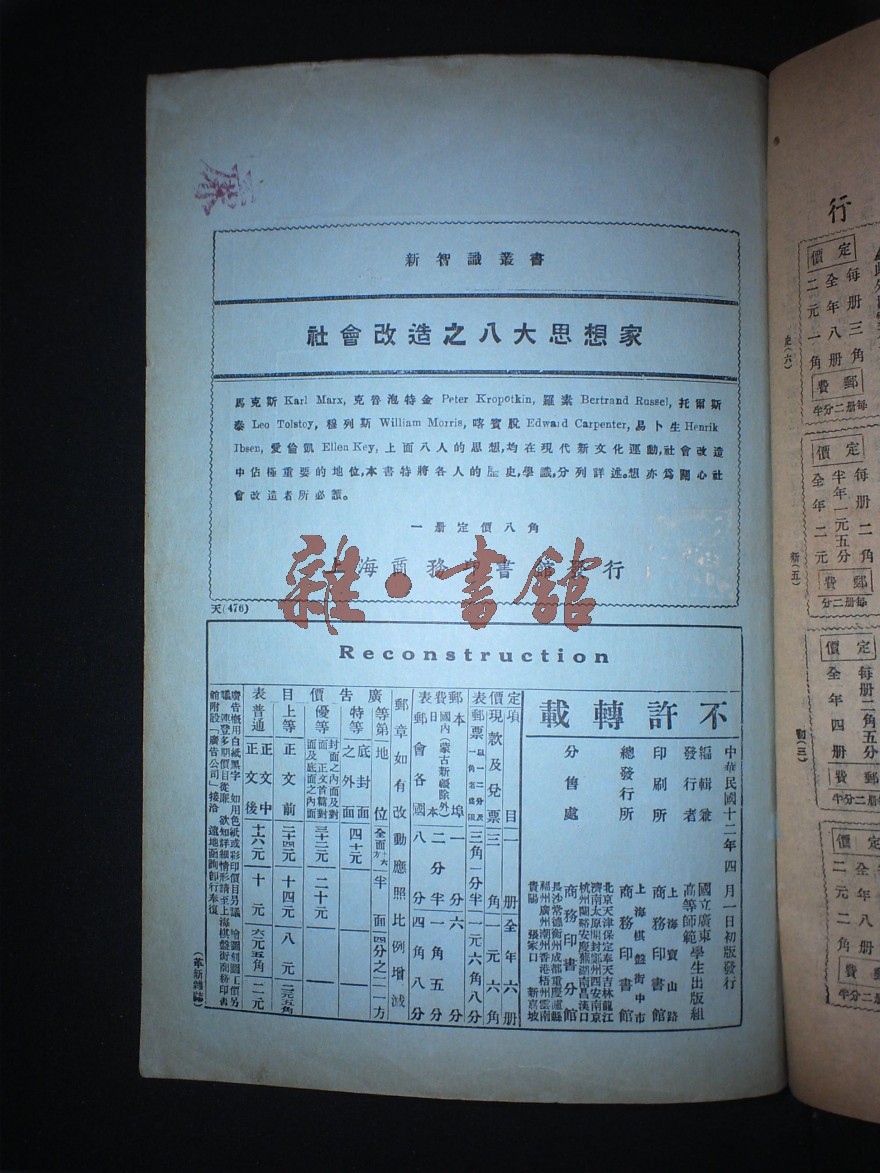 新智識叢書
社會改造之八大思想家
馬克斯 Karl Marx, 克魯泡特金 Peter Kropotkin, 羅素 Bertrand Russel, 托爾斯
泰 Leo Tolstoy, 程列斯 William Morris, 喀賓脫 Edward Carpenter, 易卜生 Henrik
Ibsen, 愛倫凱 Ellen Key, 上面八人的思想,均在現代新文化運動,社會改造
中佔極重要的地位,本書特將各人的歷史,學識,分列詳述。想亦爲關心社
會改造者所必讀。
一册定價八角
上海商務印書館發行
雜·書館
天(476)
Reconstruction
不許轉載
中華民國十二年四月一日初版發行
編輯兼發行者 國立廣東高等師範學生出版組
印刷所 上海寶山路 商務印書館
總發行所 上海棋盤街中市 商務印書館
分售處 商務印書分館
北京天津保定奉天吉林龍江
濟南太原開封鄭州西安南京
杭州蘭谿安慶蕪湖南昌漢口
長沙常德衡州成都重慶瀘縣
福州廣州潮州香港梧州雲南
貴陽 張家口 新嘉坡
定價表
項目 一册 全年六册
現款及兌票 三角 一元六角
郵票 三角一分半 一元六角八分
郵費表
本埠 一分 六分
國內(蒙古新疆除外) 日本 二分半 一角五分
郵會各國 八分 四角八分
郵章如有改動應照比例增減
廣告價目表
等第 地位 全面 半面 四分之一 一方
特等 底封面之外面 四十元
優等 封面之內面及對面 正文首篇對面及底面之內面 三十二元 二十元
上等 正文前 二十四元 十四元 八元 二元五角
普通 正文中 正文後 十六元 十元 六元五角 二元
廣告概用白紙黑字 如用色紙或彩印價目另議 繪圖刻圖工價另
議 連登多期價目從廉 欲知詳細情形請至上海棋盤街商務印書
館附設「廣告公司」接洽 遠地函詢即行奉復
(革新雜誌)
行
定價
每册三角
全年八册
二元一角
郵費
每册二分半
史(六)
定價
每册
半年一元五分
全年二元
郵費
每册二分
新(五)
定價
每册二角五分
全年四册
郵費
每册二分半
勸(三)
定價
二元二角
郵費
每册二分半